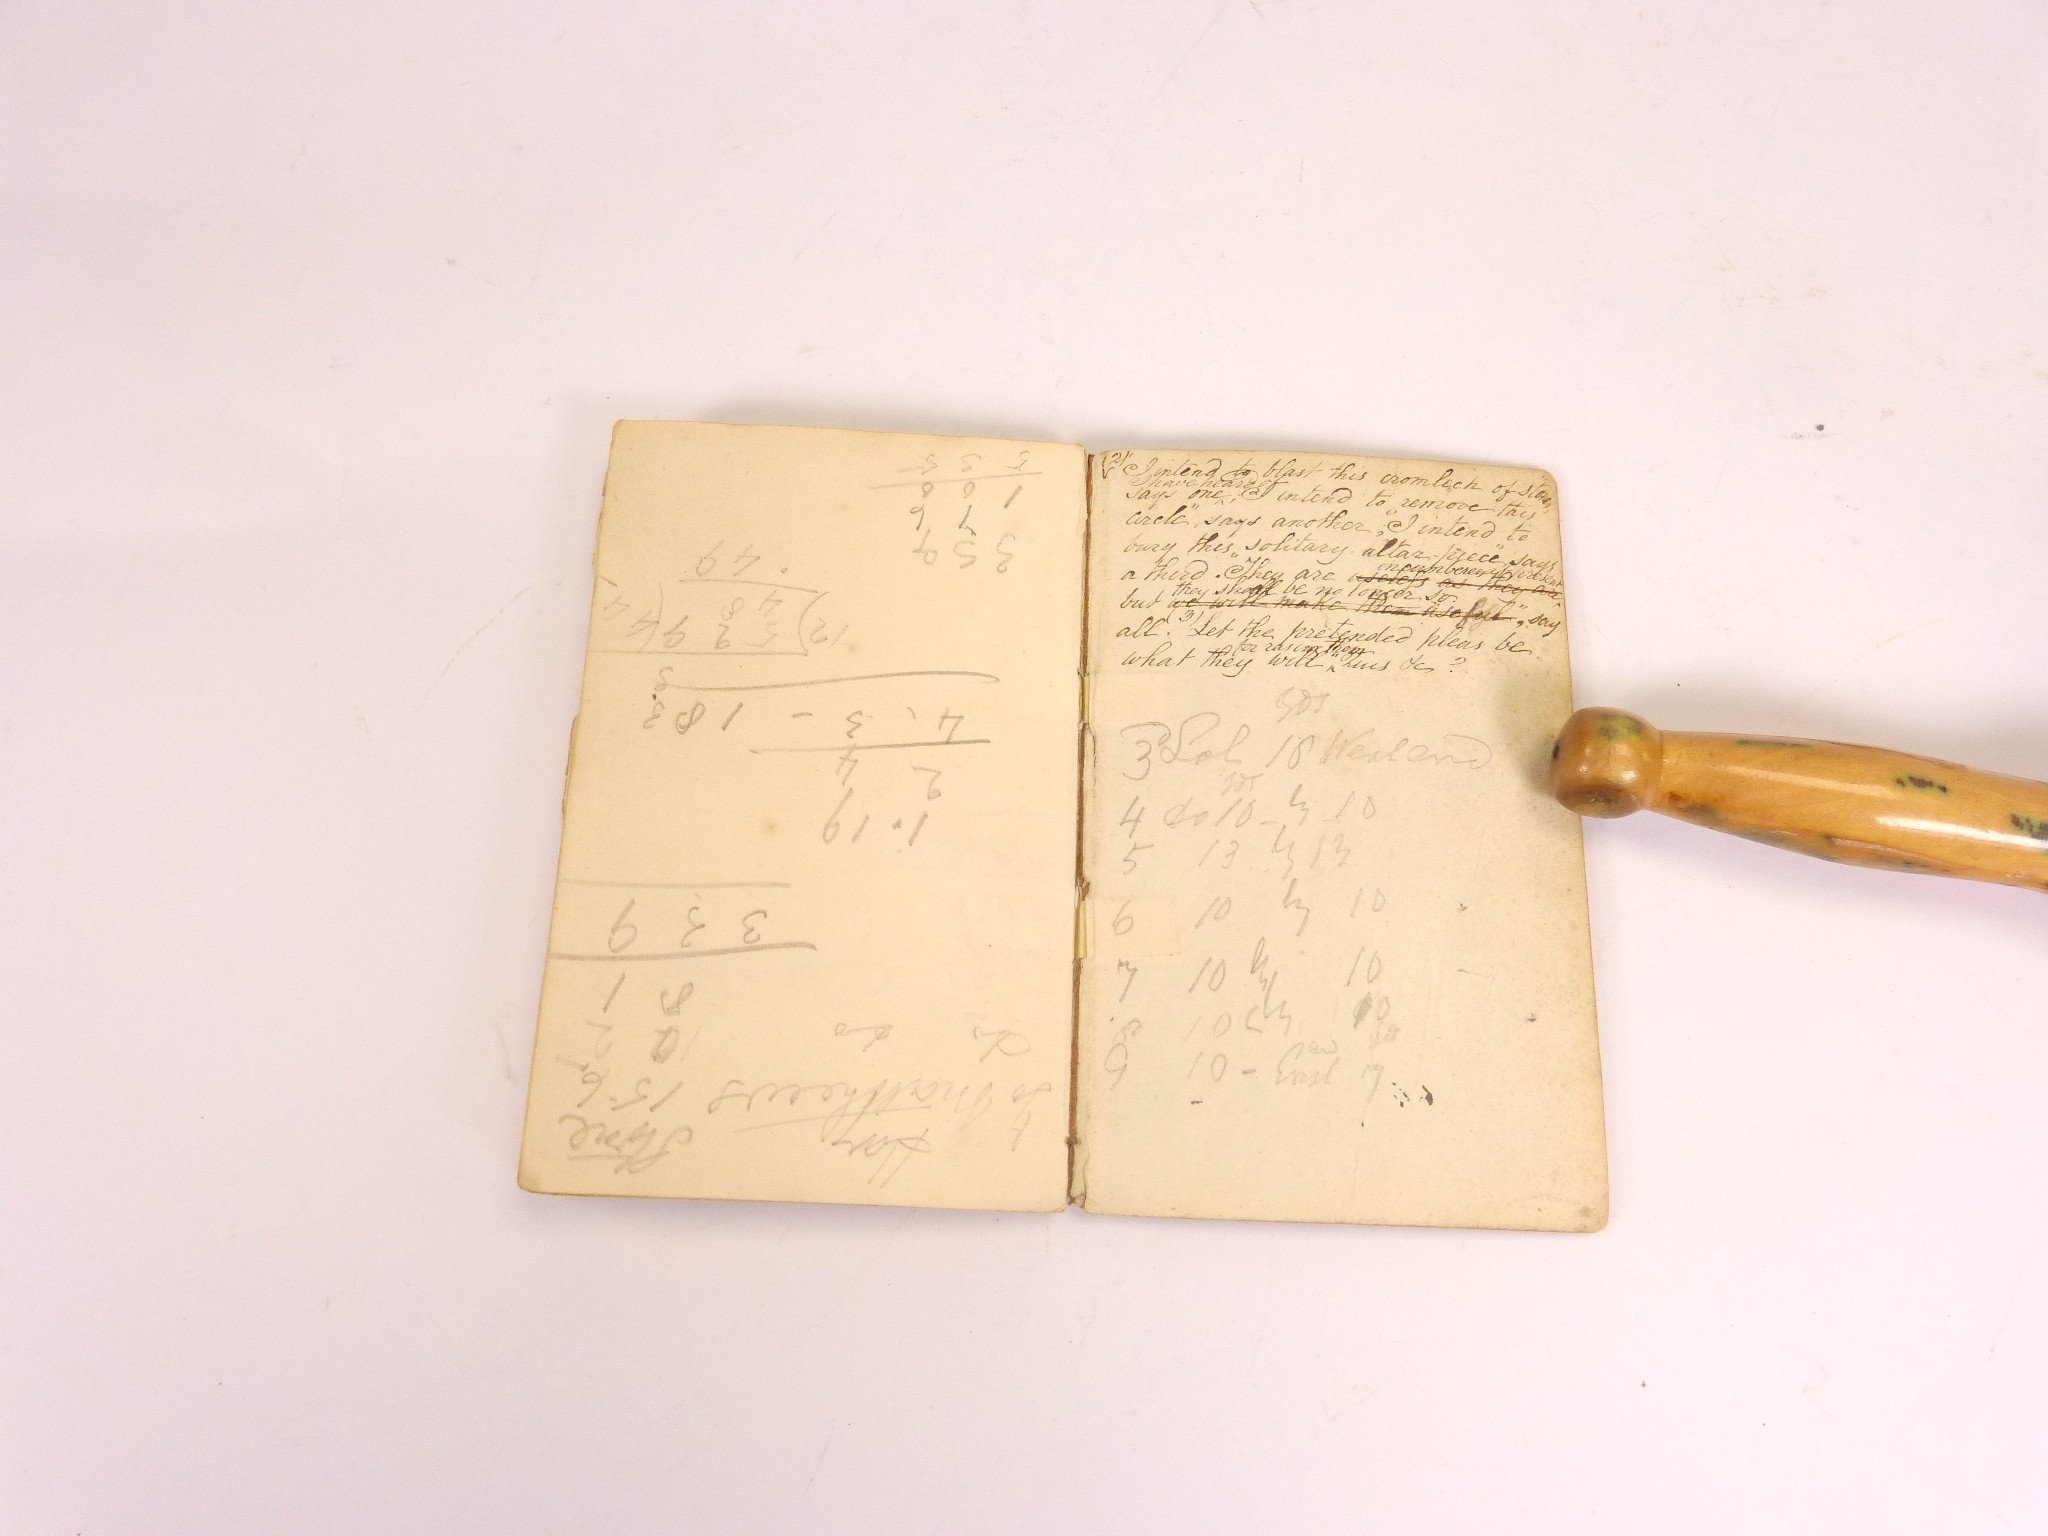 2) "I intend to blast this cromlech of stones,"
I have heard of
says one, "I intend to remove this
circle", says another, "I intend to
bury this "solitary altar-piece", says
incumberers present
a third. "They are useless as they are
they shall be no longer so.
but we will make them useful", say
all. 3) Let the pretended pleas be
for rasing them
what they will, "Quis &c ?
yds
3 Lot 18 Westend
4 do 10 - by 10
5 13 by 13
6 10 by 10
7 10 by 10
8 10 by 10
9 10 - East 7
Stone
To Matthews 15-6
do do
8 1
3 3 9
1.19
2 4
4.3 - 18
12) 5 2 9 (44
48
49
3 5 9
7 6
1 0 0